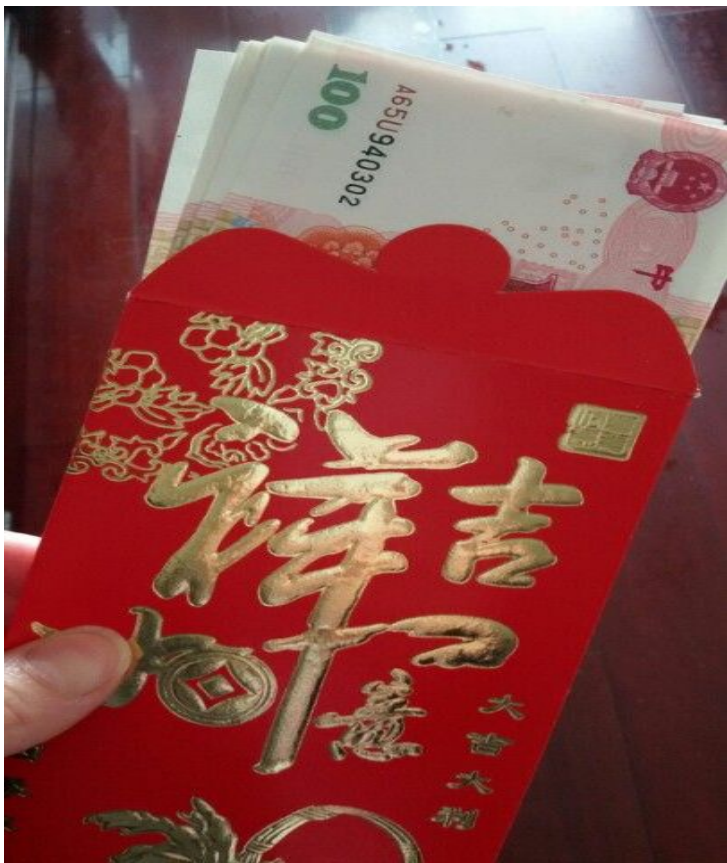 100
A65U940302
中
吉祥
大吉大利